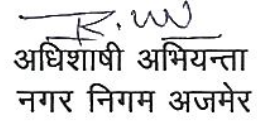 अधिशाषी अभियन्ता
नगर निगम अजमेर